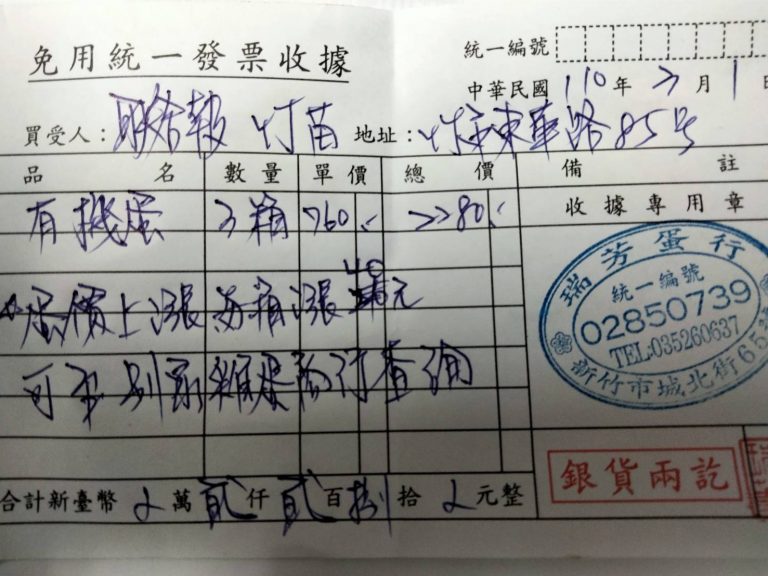 免用統一發票收據
統一編號
中華民國 110 年 3 月 1 日
買受人：聯合報 竹苗 地址：竹市東華路85號
品名 數量 單價 總價 備註
有機蛋 3箱 760.- 2280.- 收據專用章
蛋價上漲 每箱漲 40 元
可至 雞蛋 行查詢
瑞芳蛋行
統一編號
02850739
TEL:035260637
新竹市城北街65
銀貨兩訖
合計新臺幣 萬 貳 仟 貳 百 捌 拾 元整